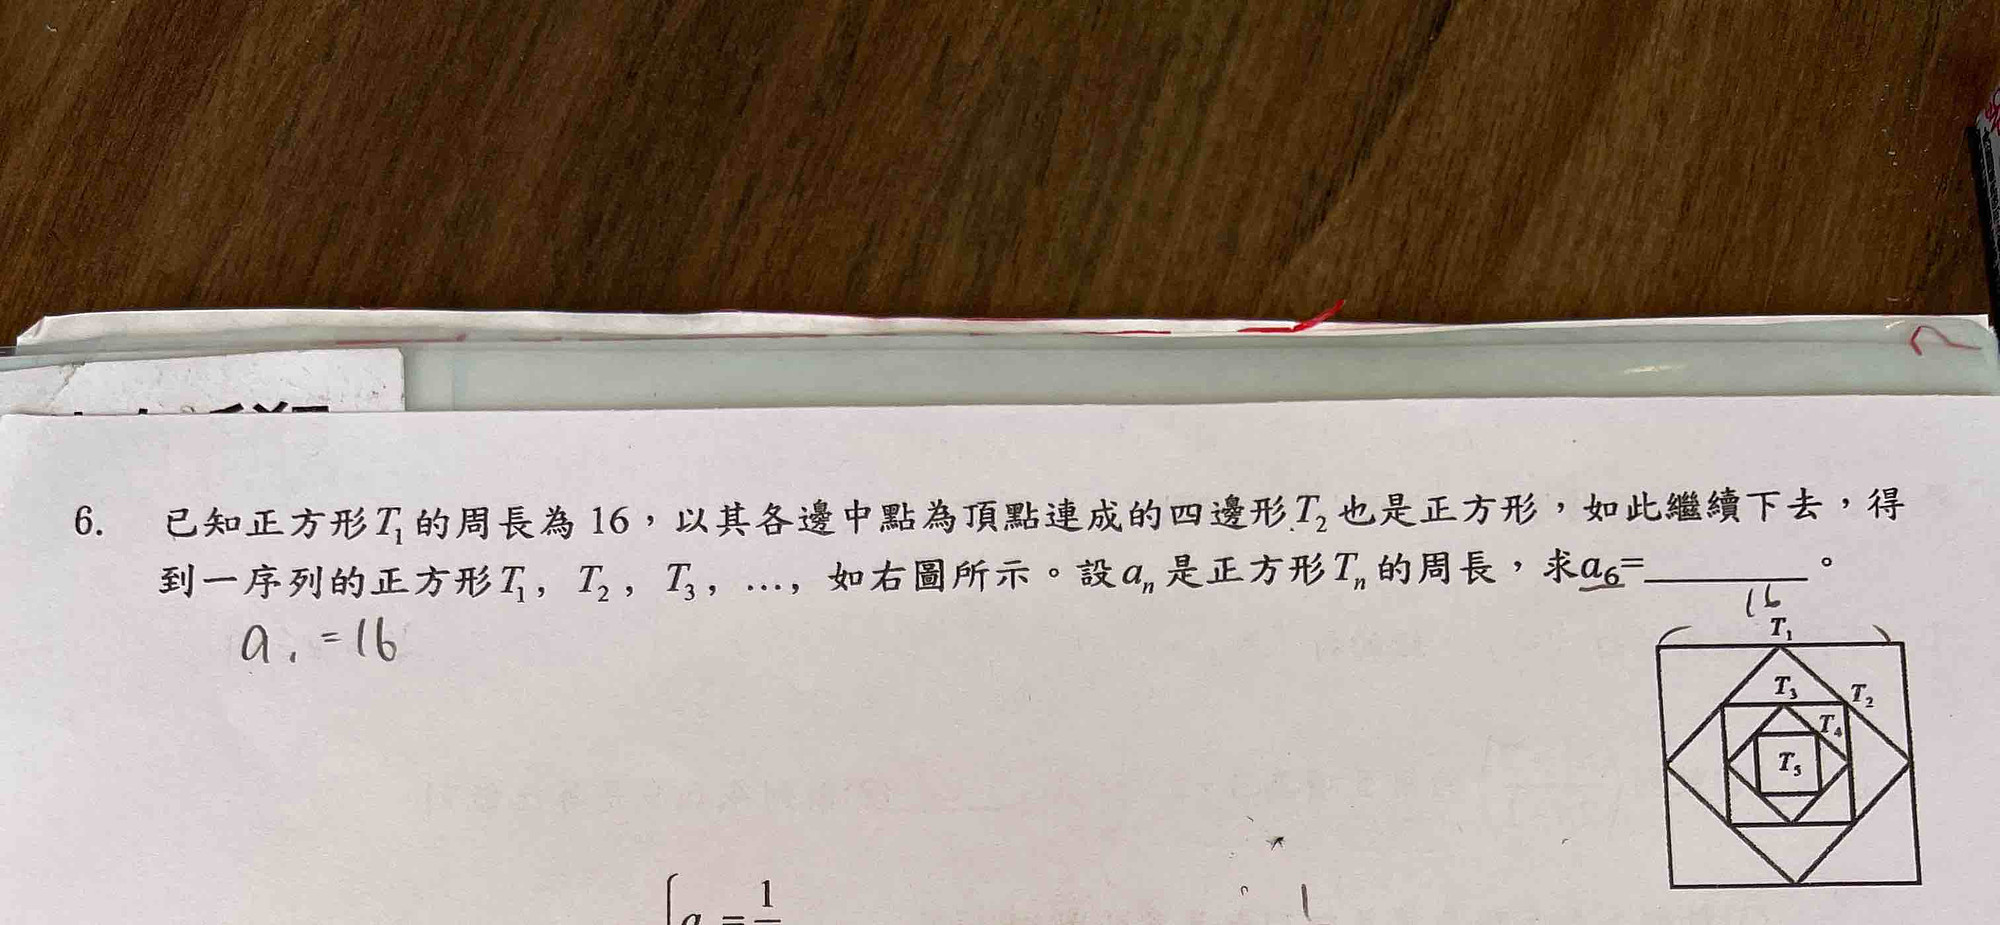 6. 已知正方形T₁的周長為16，以其各邊中點為頂點連成的四邊形T₂也是正方形，如此繼續下去，得
到一序列的正方形T₁，T₂，T₃，…，如右圖所示。設aₙ是正方形Tₙ的周長，求a₆=________。
a₁=16
16
T₁
T₃ T₂
T₄
T₅
1